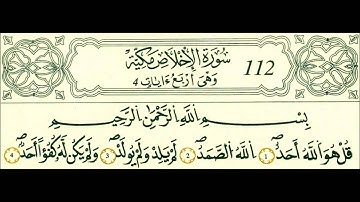 سُورَةُ الْإِخْلَاصِ مَكِّيَّةٌ 112
وَهِيَ أَرْبَعُ ءَايَاتٍ 4
بِسْمِ اللَّهِ الرَّحْمَٰنِ الرَّحِيمِ
قُلْ هُوَ اللَّهُ أَحَدٌ 1 اللَّهُ الصَّمَدُ 2 لَمْ يَلِدْ وَلَمْ يُولَدْ 3 وَلَمْ يَكُن لَّهُ كُفُوًا أَحَدٌ 4